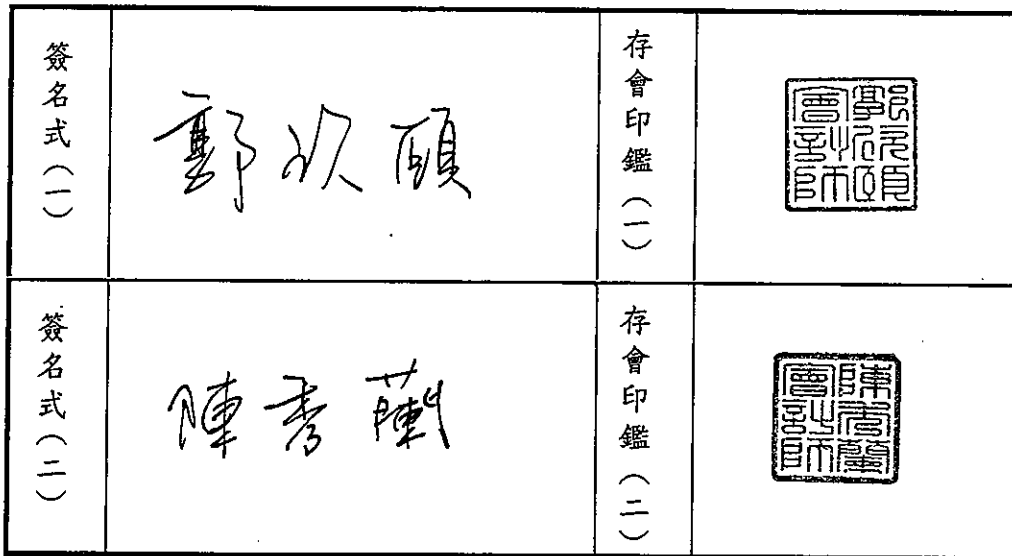 簽名式（一）
郭欣頤
存會印鑑（一）
會計師
簽名式（二）
陳秀蘭
存會印鑑（二）
陳秀蘭
會計師